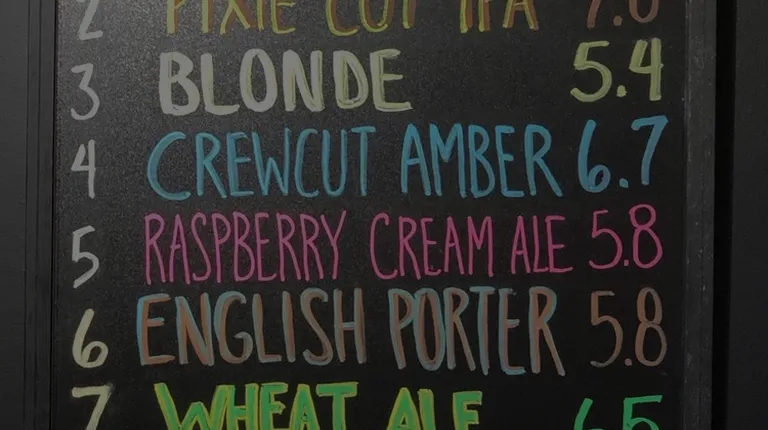 2 PIXIE CUT IPA 7.0
3 BLONDE 5.4
4 CREWCUT AMBER 6.7
5 RASPBERRY CREAM ALE 5.8
6 ENGLISH PORTER 5.8
7 WHEAT ALE